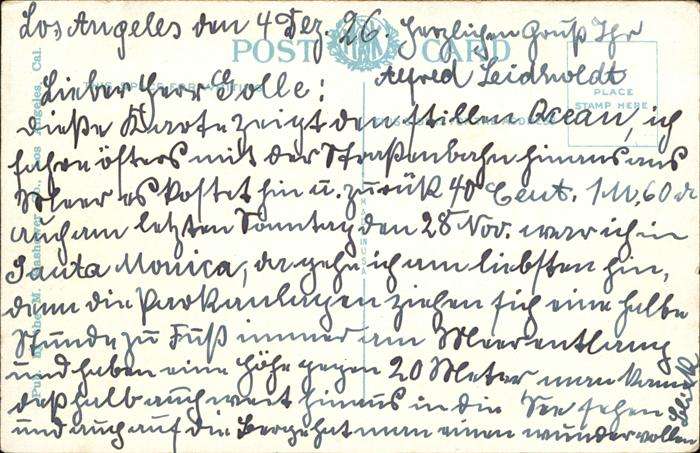 Los Angeles den 4 Dez. 26. Herzlichen Gruß Ihr
Alfred Leidholdt
POST CARD
PLACE
STAMP HERE
Lieber Herr Golle:
dieße Karte zeigt den stillen Ocean, ich
fahre öfters mit der Straßenbahn hinaus ans
Meer es kostet hin u. zurük 40 Cent. 1 M, 60 d
auch am letzten Sonntag den 28 Nov. war ich in
Santa Monica, da gehe ich am liebsten hin,
denn die Parkanlagen ziehen sich eine halbe
Stunde zu Fuß immer am Meer entlang
und haben eine Höhe gegen 20 Meter man kann
deßhalb auch weit hinaus in die See sehen
und auch auf die Berge hat man einen wundervollen
Blick